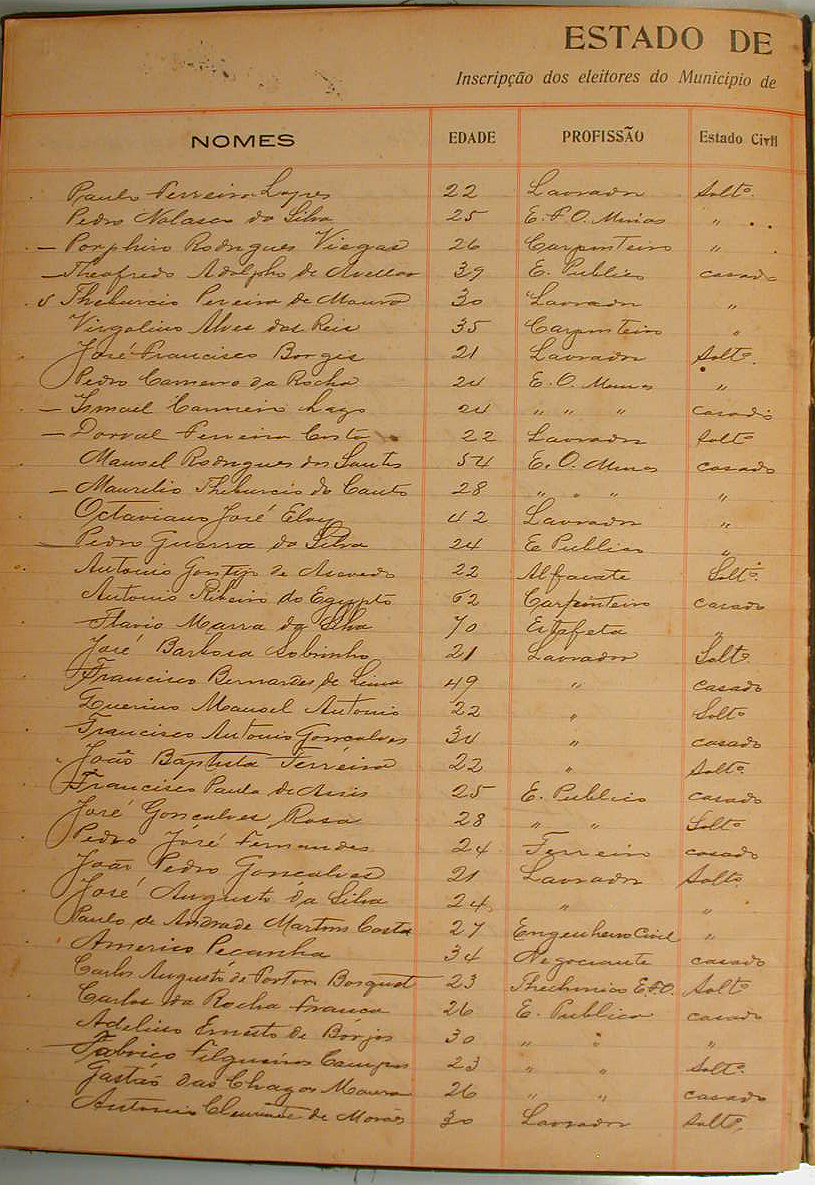 ESTADO DE
Inscripção dos eleitores do Municipio de
NOMES EDADE PROFISSÃO Estado Civil
Paulo Ferreira Lopes 22 Lavrador Solto.
Pedro Nolasco da Silva 25 E. F. O. Minas "
– Porphirio Rodrigues Viegas 26 Carpinteiro "
– Theofredo Adolpho de Avellar 39 E. Publico casado
Theburcio Pereira de Moura 30 Lavrador "
Virgolino Alves dos Reis 35 Carpinteiro "
José Francisco Borges 21 Lavrador Solto.
Pedro Carneiro da Rocha 24 E. O. Minas "
– Ismael Carneiro Lago 24 " " " casado
– Dorval Ferreira Costa 22 Lavrador Solto
Manoel Rodrigues dos Santos 54 E. O. Minas casado
– Maurilio Theburcio do Couto 28 " " " "
Octaviano José Eloy 42 Lavrador "
– Pedro Guerra da Silva 24 E Publico "
Antonio Gontijo de Azevedo 22 Alfaiate Solto.
Antonio Ribeiro do Egypto 62 Carpinteiro casado
Flavio Marra da Silva 70 Estafeta "
José Barbosa Sobrinho 21 Lavrador Solto
Francisco Bernardes de Lima 49 " casado
Manoel Antonio 22 " Solto
Francisco Antonio Goncalves 34 " casado
João Baptista Ferreira 22 " Solto
Francisco Paula de Assis 25 E. Publico casado
José Goncalves Rosa 28 " " Solto
Pedro José Fernandes 24 Ferreiro casado
João Pedro Goncalves 21 Lavrador Solto
José Augusto da Silva 24 " "
Paulo de Andrade Martins Costa 27 Engenheiro Civil "
Americo Pecanha 34 Negociante casado
Carlos Augusto de Porton Bosquet 23 Thechnico E.F.O. Solto
Carlos da Rocha Franca 26 E. Publico casado
Adelino Ernesto de Borjos 30 " " "
Fabrico Filgueiras Campos 23 " " Solto.
Gastão das Chagas Moura 26 " " casado
Antonio de Moraes 30 Lavrador Solto.